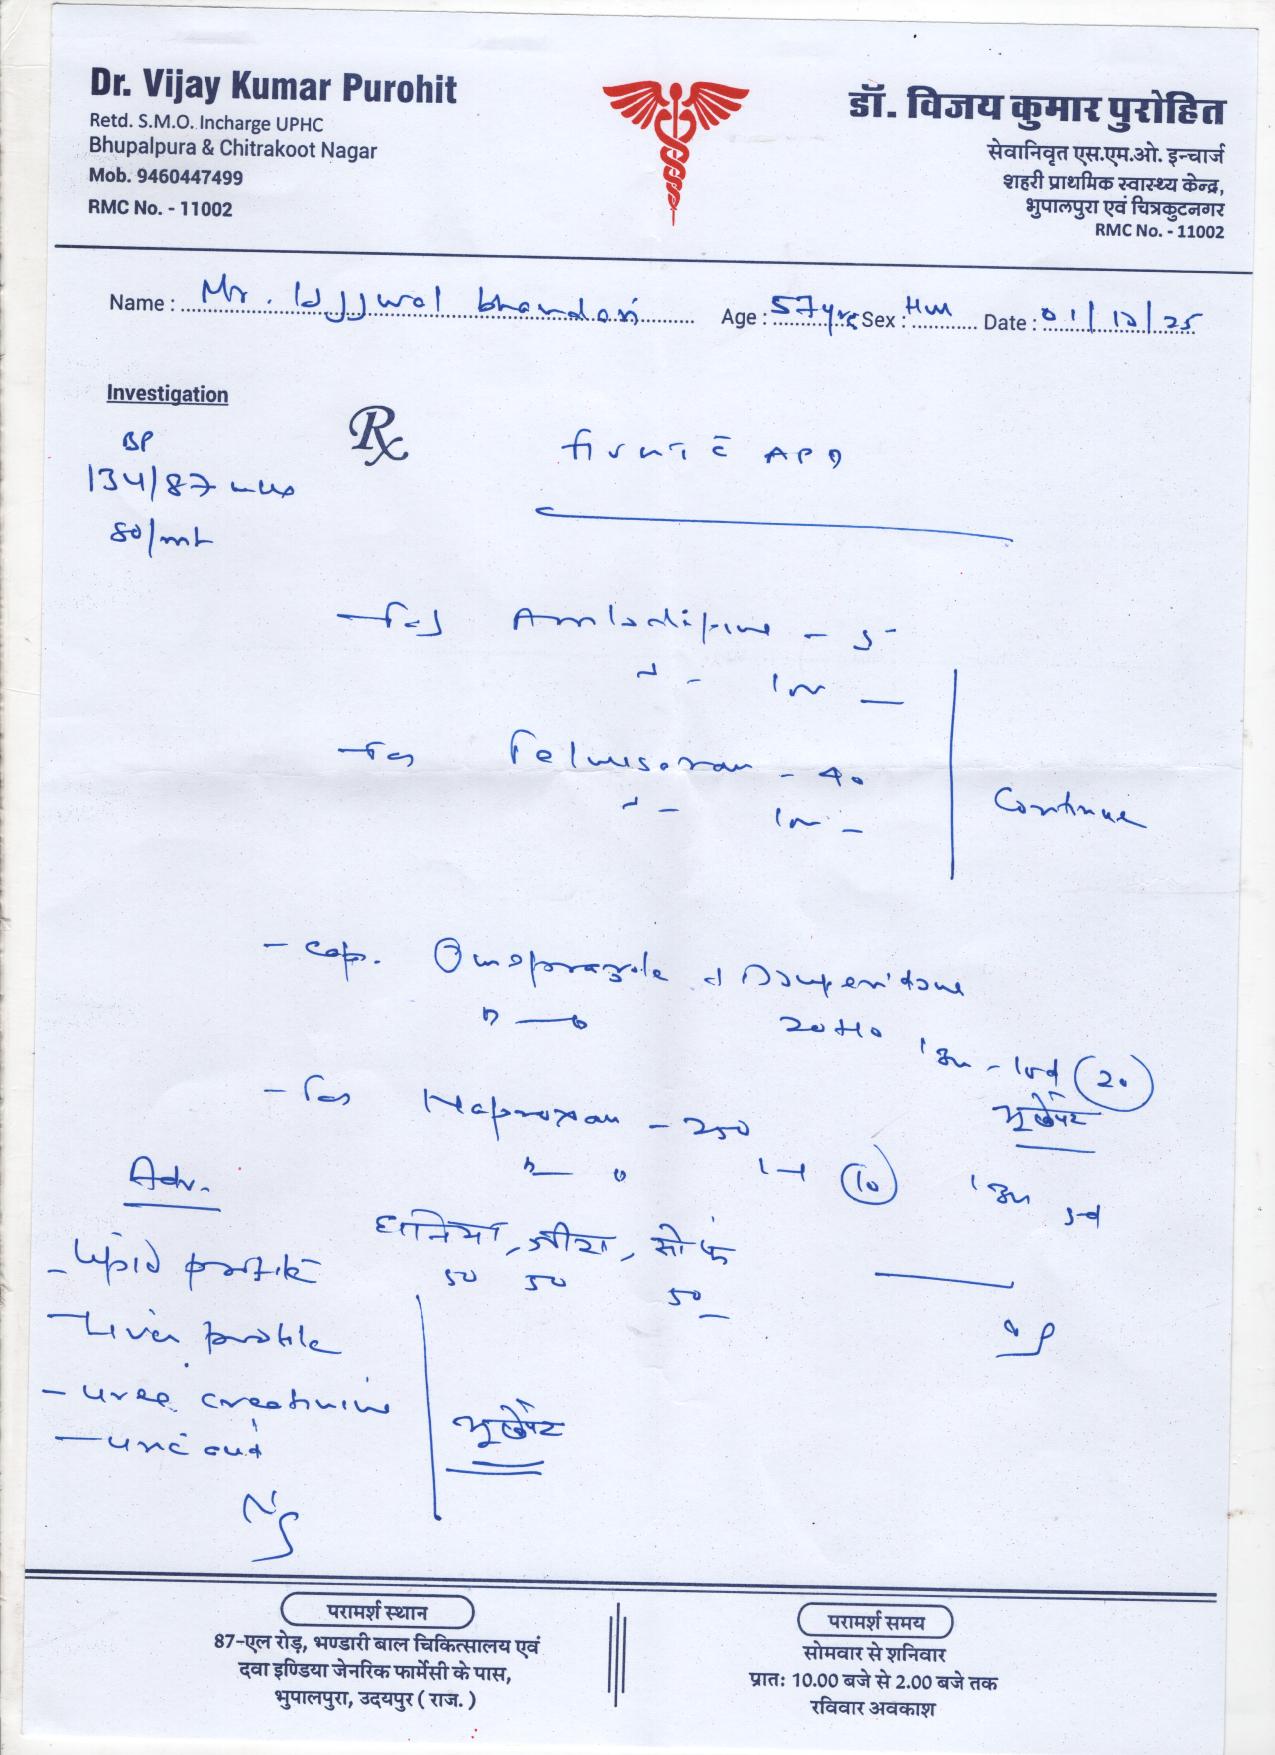 Dr. Vijay Kumar Purohit
Retd. S.M.O. Incharge UPHC
Bhupalpura & Chitrakoot Nagar
Mob. 9460447499
RMC No. - 11002
डॉ. विजय कुमार पुरोहित
सेवानिवृत एस.एम.ओ. इन्चार्ज
शहरी प्राथमिक स्वास्थ्य केन्द्र,
भुपालपुरा एवं चित्रकुटनगर
RMC No. - 11002
Name : Mr. Ujjwal bhandari Age : 57yrs Sex : Date : 01/12/25
Investigation
Rx
BP
134/87
80/mt
APD
Tab Amlodipine - 5
Tab Telmisartan - 40
Continue
- Cap. Omeprazole + Domperidone
20+10
20
भूखेपेट
- Tab Naproxan - 250
10
Adv.
धनिया, जीरा, सोंफ
50 50 50
- Lipid profile
- Liver profile
- urea creatinine
- uric acid
भूखेपेट
परामर्श स्थान
87-एल रोड़, भण्डारी बाल चिकित्सालय एवं
दवा इण्डिया जेनरिक फार्मेसी के पास,
भुपालपुरा, उदयपुर ( राज. )
परामर्श समय
सोमवार से शनिवार
प्रातः 10.00 बजे से 2.00 बजे तक
रविवार अवकाश